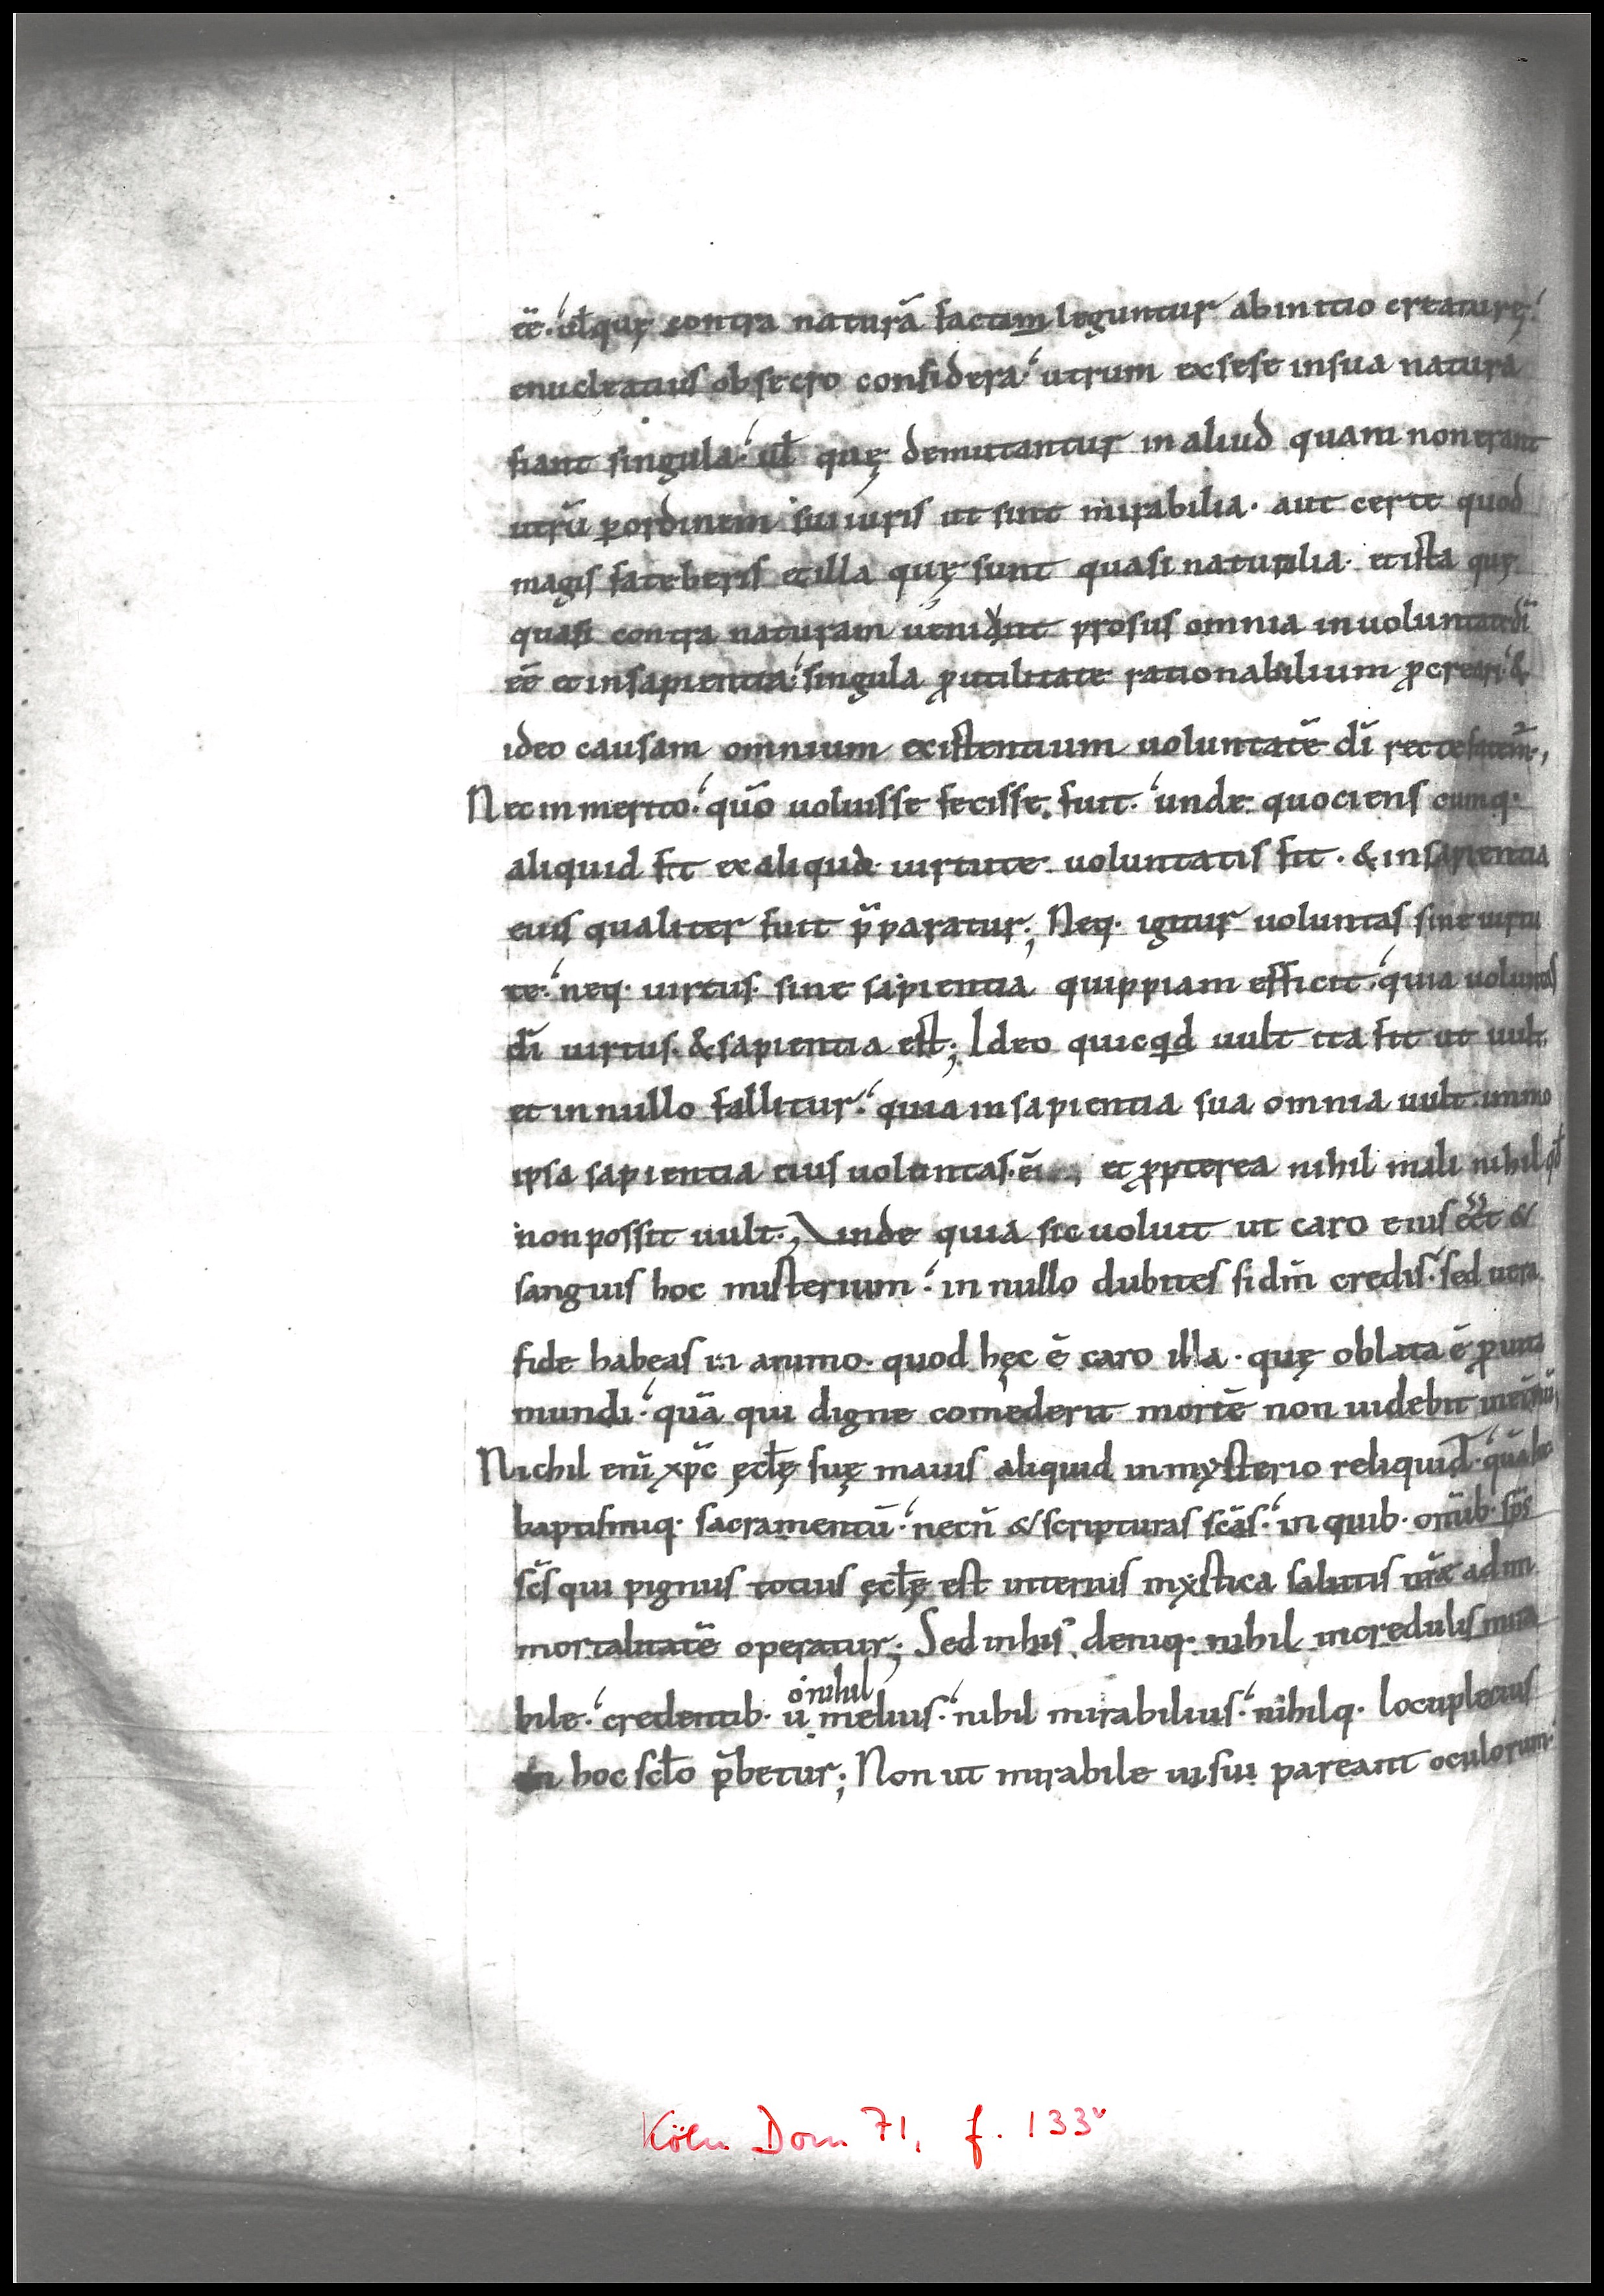 eẽ· ul̃ quę contra naturã factam leguntur ab initio creaturę·
enucleatius obsecro considera· utrum ex sese in sua natura
fiant singula· ul̃ quę demutantur in aliud quam non erant
utrũ ꝑ ordinem sui iuris ut sint mirabilia· aut certe quod
magis fateberis et illa quę sunt quasi naturalia· et ista quę
quasi contra naturam ueniunt prosus omnia in uoluntate dĩ
eẽ et in sapientia· singula ꝓ utilitate rationabilium ꝓcreari· &
ideo causam omnium existentium uoluntatẽ dĩ recte fatem̃·,
Nec inmerito· quõ uoluisse fecisse fuit· unde quociens cumq·
aliquid fit ex aliqua uirtute uoluntatis fit· & in sapientia
eius qualiter fuit p̃paratur; Neq· igitur uoluntas sine uirtu
te· neq· uirtus sine sapientia quippiam efficit· quia uoluntas
dĩ uirtus & sapientia est; Ideo quicq̃d uult ita fit ut uult
et in nullo fallitur· quia in sapientia sua omnia uult immo
ipsa sapientia eius uoluntas· ẽ et ꝓpterea nihil mali nihil qd̃
non possit uult·, Unde quia sic uoluit ut caro eius eẽt &
sanguis hoc misterium· in nullo dubites si dm̃ credis· sed uera
fide habeas in animo· quod hęc ẽ caro illa· quę oblata ẽ ꝓ uita
mundi· quã qui digne comederit mortẽ non uidebit
Nichil enĩ xp̃c ęcl̃ę suę maius aliquid in mysterio reliquid·
baptismuq· sacramentũ· necñ & scripturas scãs· in quib· om̃ib· sp̃s
sc̃s qui pignus totius ęcl̃ę est interius mystica salutis nr̃ae ad in
mortalitatẽ operatur; Sed in his deniq· nihil incredulis mira
bile· credentib· ů nihil melius· nihil mirabilius· nihilq· locupletius
in hoc scl̃o p̃betur; Non ut mirabile uisui pareant oculorum·
Köln Dom 71, f. 133ᵛ